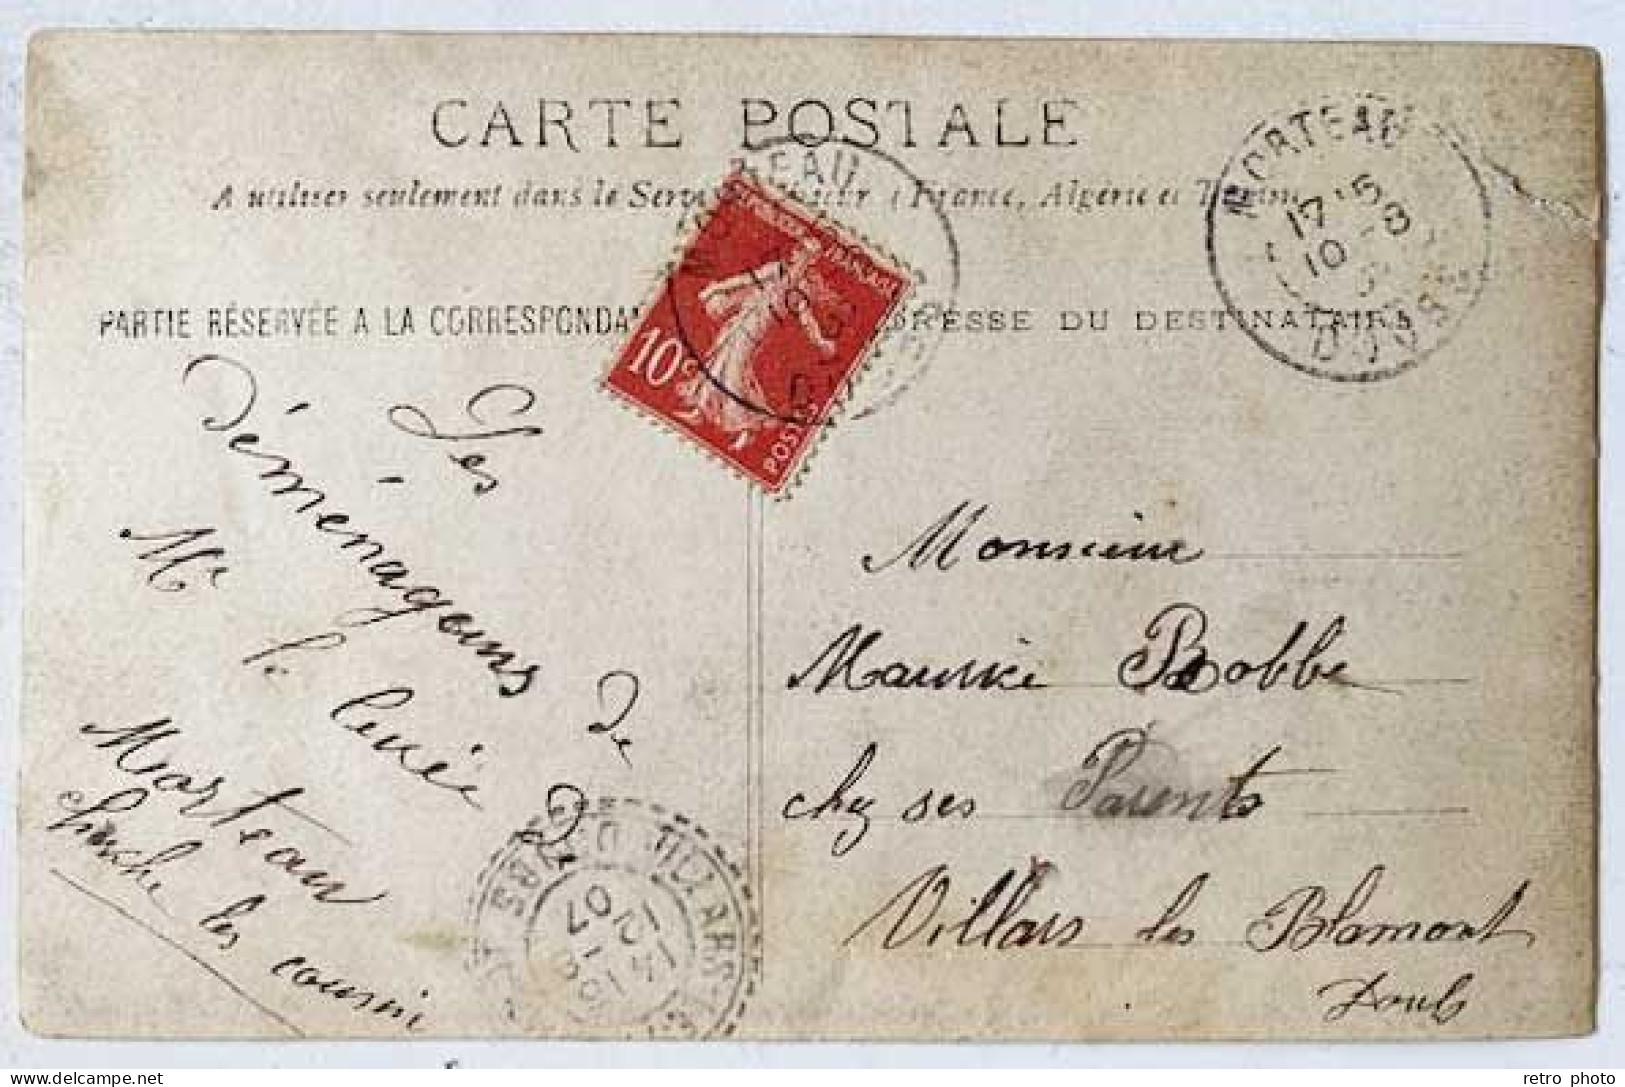 CARTE POSTALE
A utiliser seulement dans le Serv
France, Algérie et
PARTIE RÉSERVÉE A LA CORRESPONDAN
DRESSE DU DESTINATAIRE
EAU
10c
POSTES
MORTEAU
17 15
10 -8
DOUBS
Les
déménageurs
de
Mr
le
curé
De
Morteau
Cherche les
Monsieur
Maurice Bobbe
chez ses Parents
Villars les Blamont
Doubs
VILLARS
DOUBS
retro photo